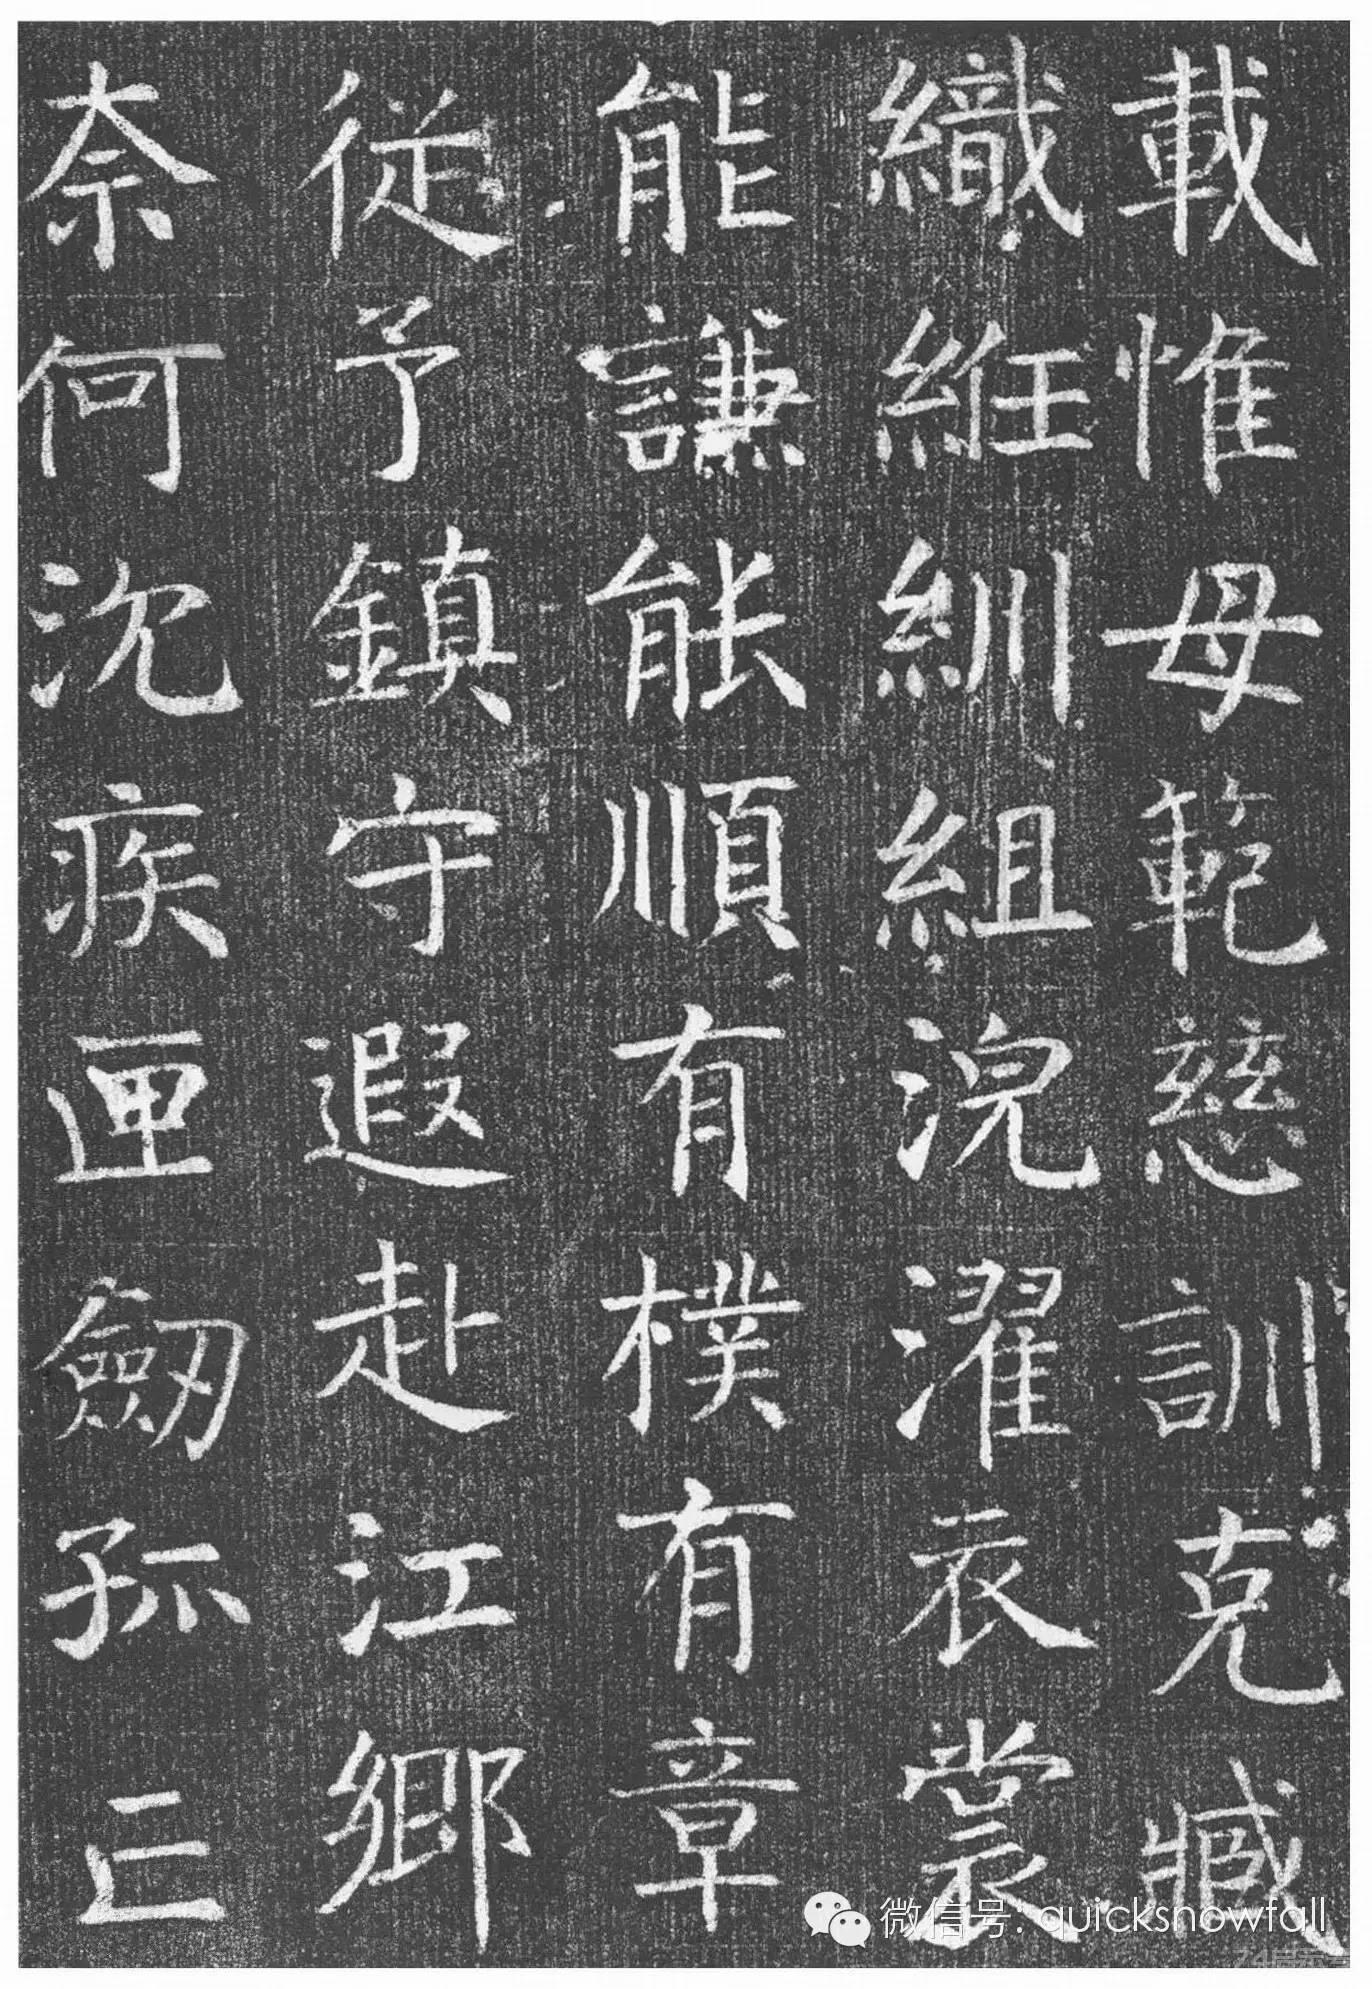 載惟母範慈訓克臧
織紝紃組浣濯衣裳
能謙能順有樸有章
従予鎮守遐赴江鄉
奈何沈疾匣劒孤亡
微信号: quicksnowfall